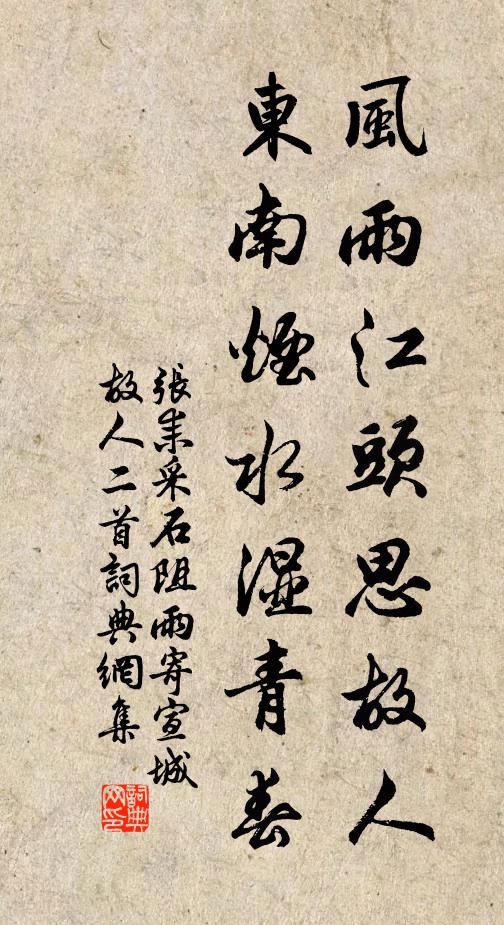 風雨江頭思故人
東南煙水湿青春
張耒采石阻雨寄宣城
故人二首詞典網集
詞典
网印